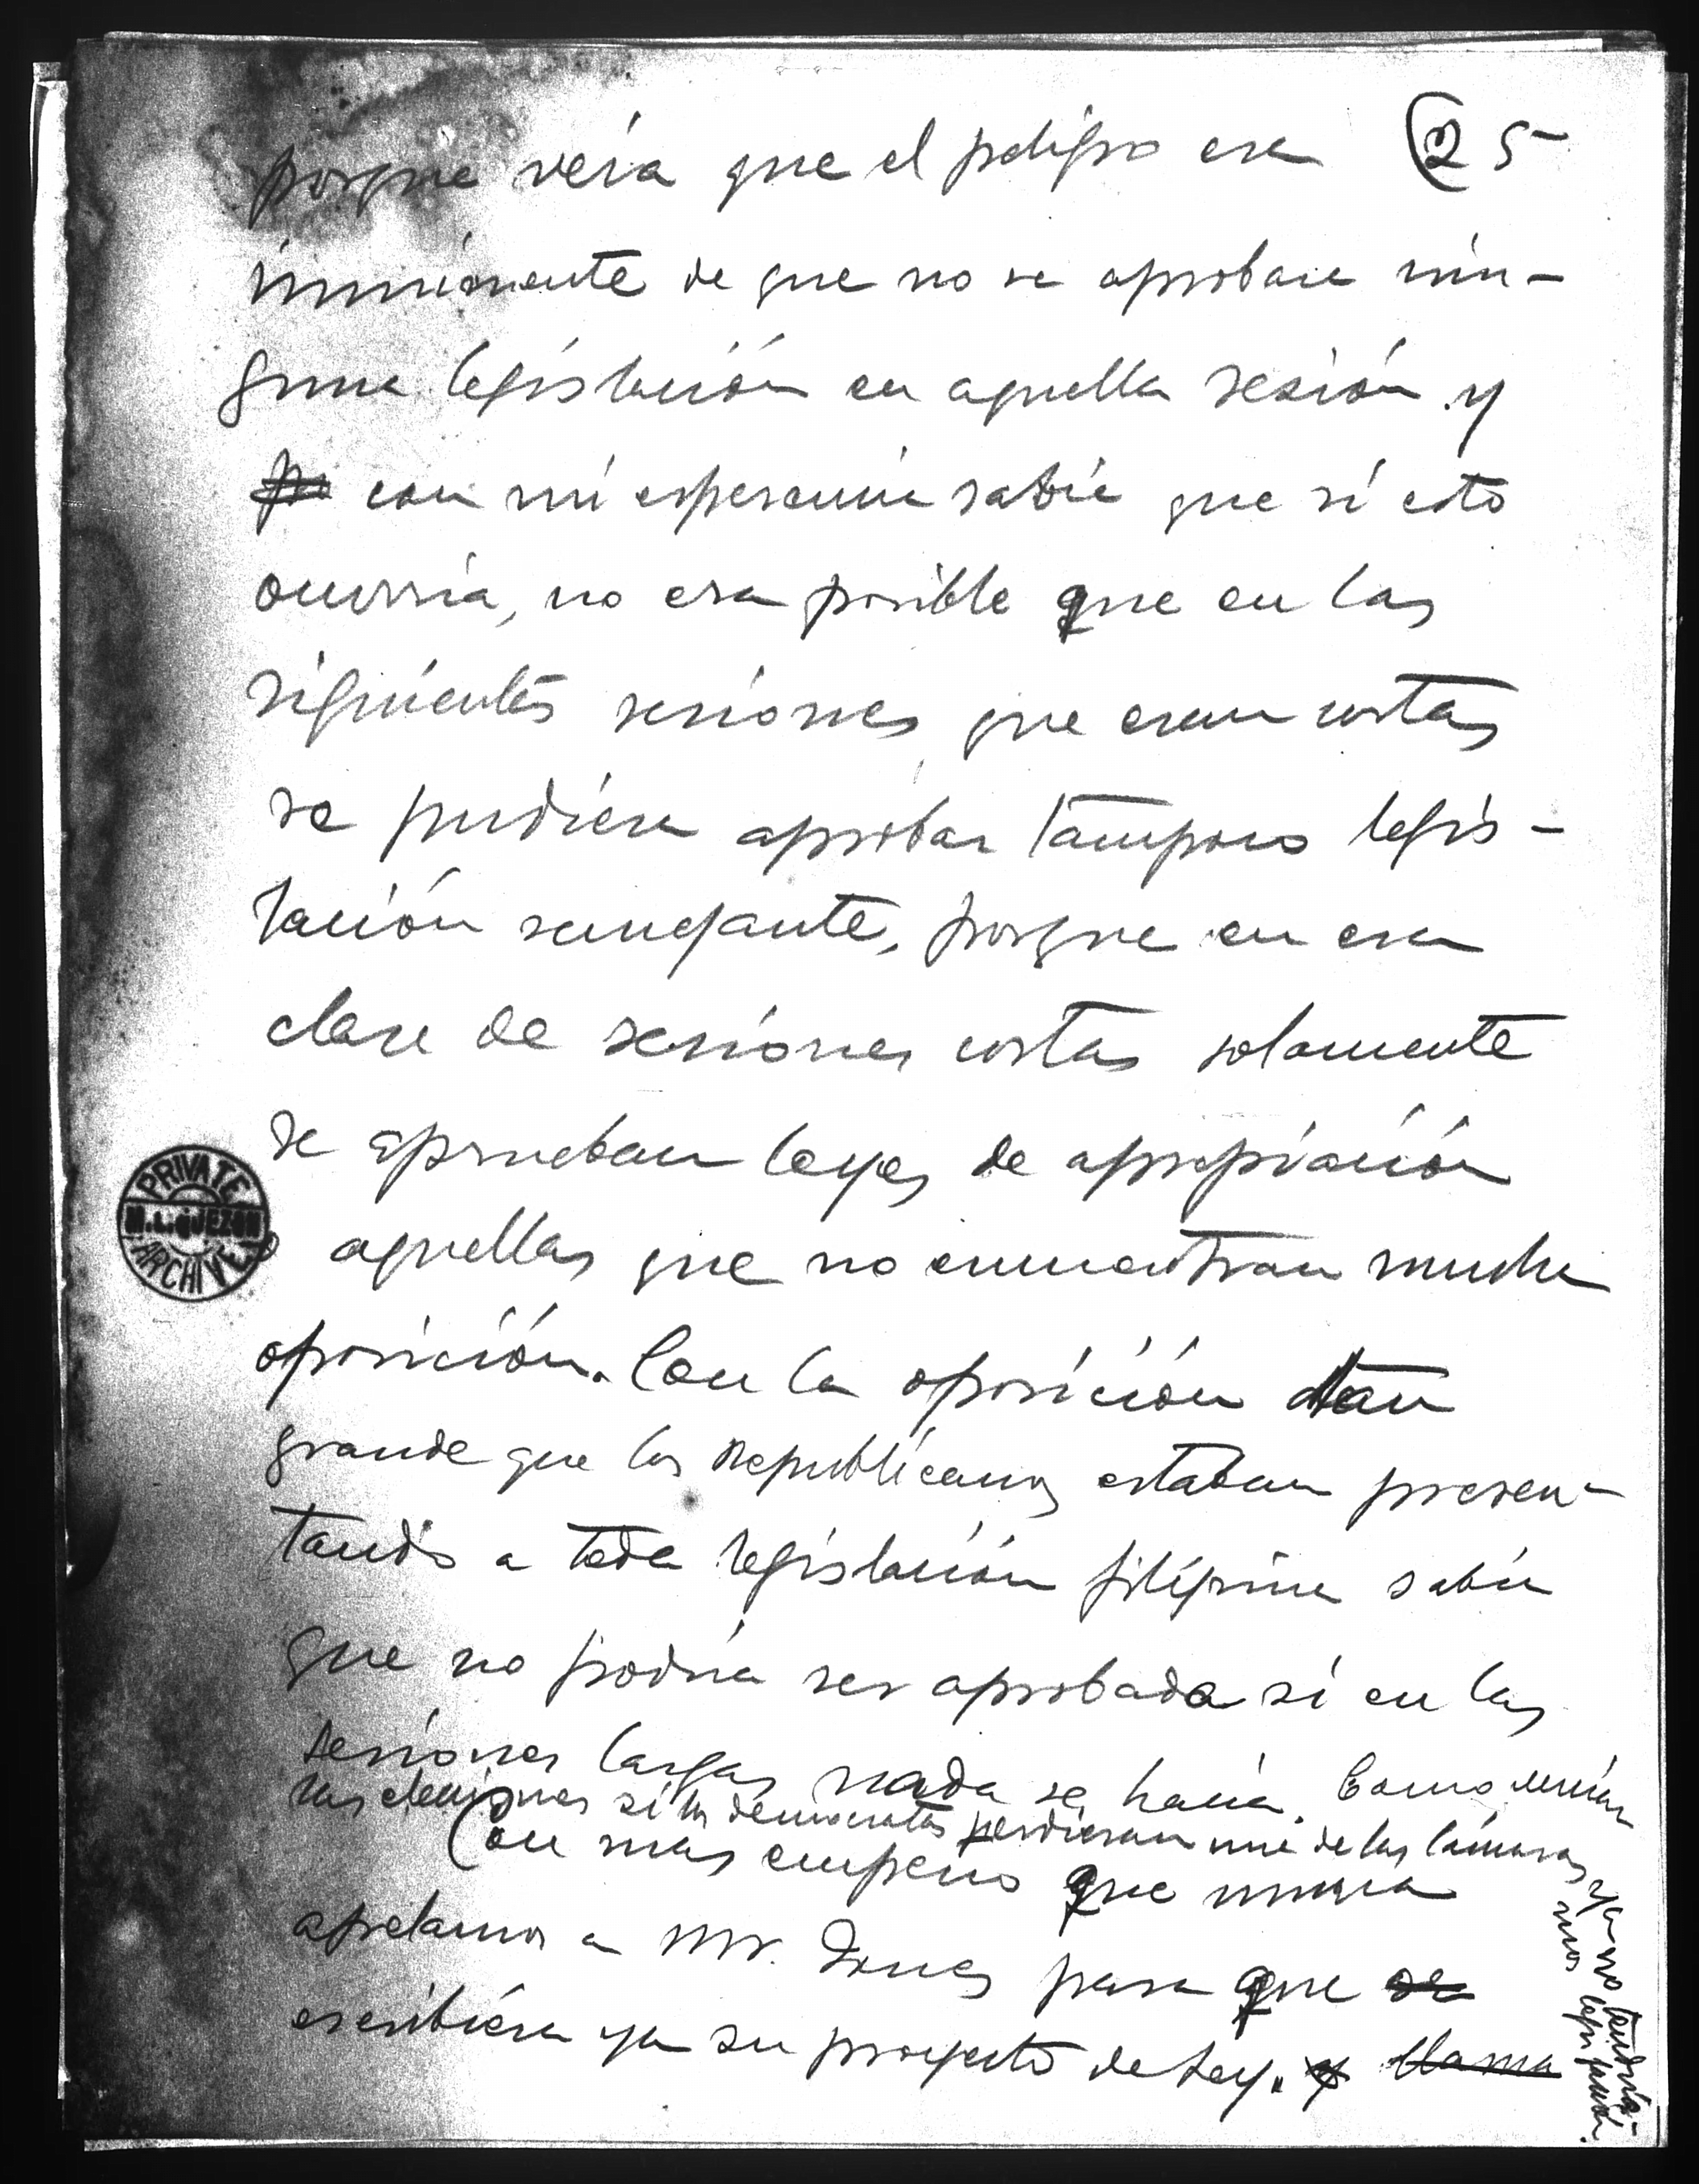 25
porque veía que el peligro era
inminente de que no se aprobase nin-
guna legislación en aquella sesión y
con mi esperiencia sabía que si esto
ocurria, no era posible que en las
siguientes sesiones, que eran cortas
se pudiera aprobar tampoco legis-
lación semejante, porque en esa
clase de sesiones cortas solamente
se aprueban leyes de apropiación
o aquellas que no encuentran mucha
oposición. Con la oposición tan
grande que los Republicanos estaban presen-
tando a toda legislación filipina sabía
que no podría ser aprobada si en las
sesiones largas nada se hacía. Como
las elecciones si los democratas perdieran una de las Cámaras
ya no tendría-
mos legislación.
Con mas empeño que nunca
apelamos a Mr. Jones para que se
escribiera ya su proyecto de Ley. y llama
PRIVATE
M.L. QUEZON
ARCHIVE